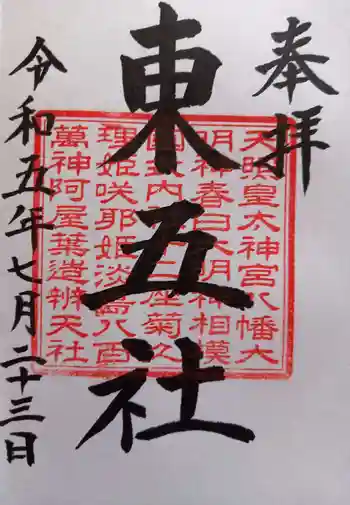 奉拝
東五社
天照皇太神宮八幡大
明神春日大明神相模
国式内十三座菊久
理姫咲耶姫淡嶌八百
萬神阿屋葉造辨天社
令和五年七月二十三日